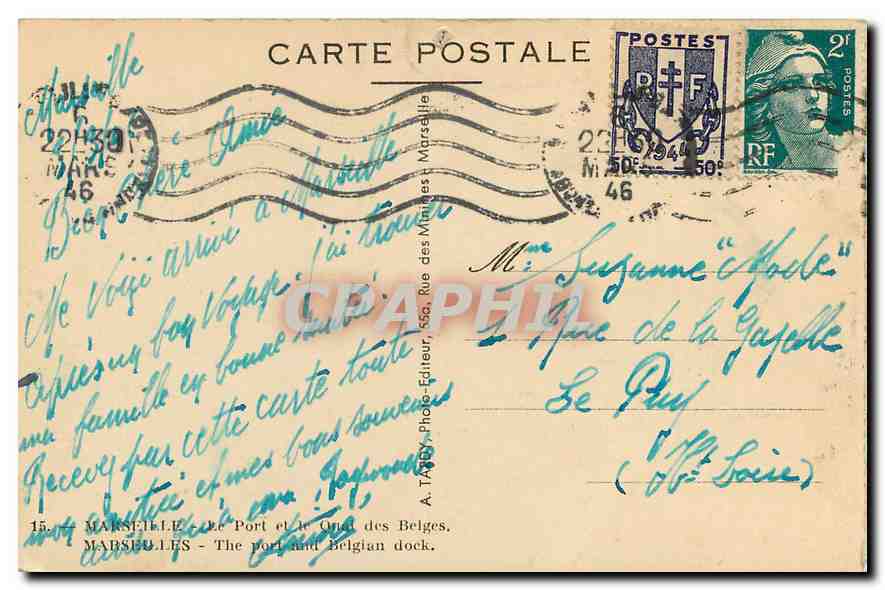 CARTE POSTALE
POSTES
RF
1944
50c 50c
2f
POSTES
RF
22H30
MARS
46
22
MARS
46
Marseille
Bien chère Amie
Me voici arrivé à Marseille
après un bon voyage. J'ai trouvé
ma famille en bonne santé.
Recevez par cette carte toute
mon amitié et mes bons souvenirs
ainsi qu'à ma
Mme Suzanne "Mode"
Rue de la Gazelle
Le Puy
(Hte Loire)
A. TARDY, Photo-Editeur, 55a, Rue des Minimes - Marseille
CPAPHIL
15. — MARSEILLE - Le Port et le Quai des Belges.
MARSEILLES - The port and Belgian dock.